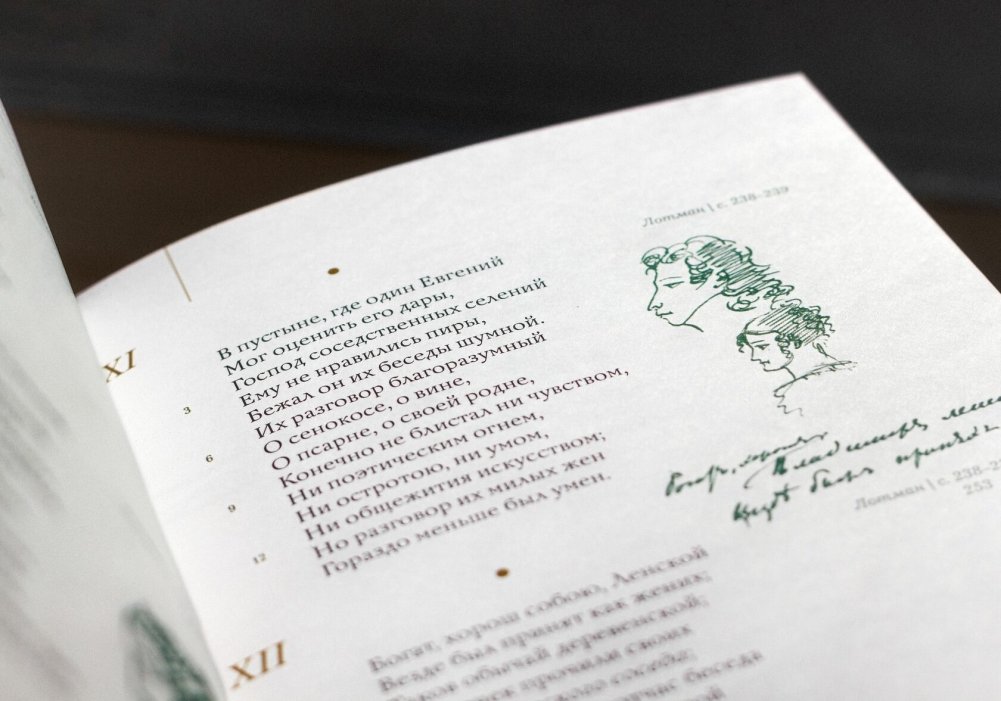 Лотман | с. 238–239
XI
В пустыне, где один Евгений
Мог оценить его дары,
Господ соседственных селений
3
Ему не нравились пиры,
Бежал он их беседы шумной.
Их разговор благоразумный
6
О сенокосе, о вине,
О псарне, о своей родне,
Конечно не блистал ни чувством,
9
Ни поэтическим огнем,
Ни остротою, ни умом,
Ни общежития искусством;
12
Но разговор их милых жен
Гораздо меньше был умен.
Лотман | с. 238–
253
XII
Богат, хорош собою, Ленской
Везде был принят как жених;
Таков обычай деревенской;
прочили своих
соседа;
беседа